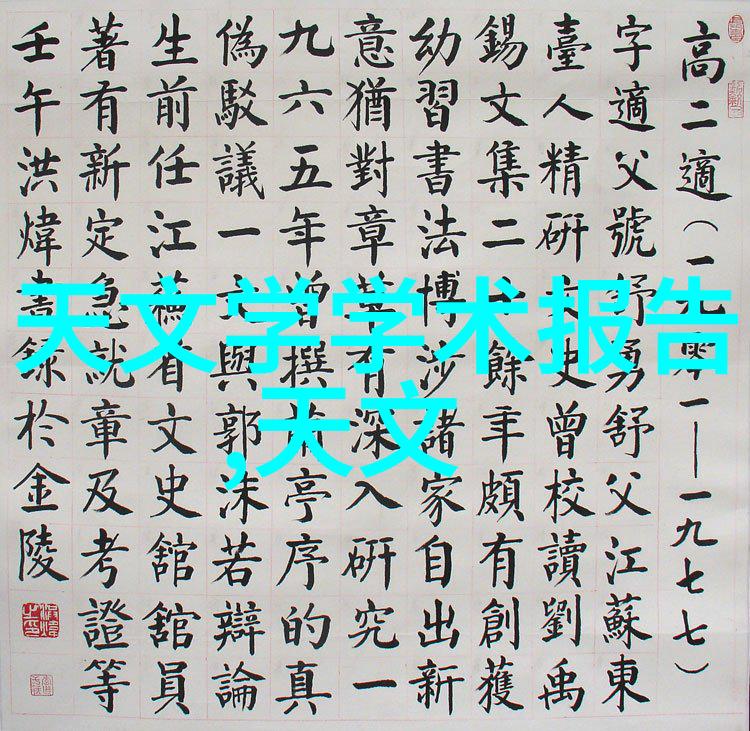 高二適(一九零一—一九七七)
字適父號舒勇舒父江蘇東
臺人精研文史曾校讀劉禹
錫文集二十餘年頗有創獲
幼習書法博涉諸家自出新
意猶對章草有深入研究一
九六五年曾撰蘭亭序的真
偽駁議一文與郭沫若辯論
生前任江蘇省文史舘舘員
著有新定急就章及考證等
壬午洪煒書錄於金陵
天文学学术报告
,天文